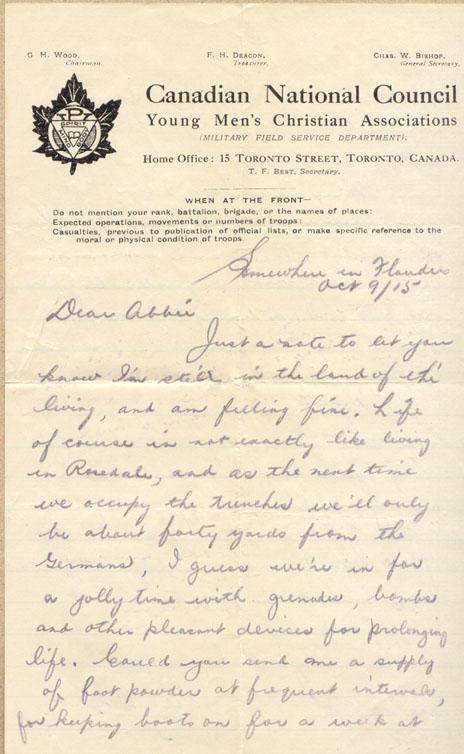 G. H. Wood, Chairman.
F. H. Deacon, Treasurer.
Chas. W. Bishop, General Secretary.
SPIRIT
MIND
BODY
Canadian National Council
Young Men's Christian Associations
(MILITARY FIELD SERVICE DEPARTMENT).
Home Office: 15 Toronto Street, Toronto, Canada.
T. F. Best, Secretary.
WHEN AT THE FRONT—
Do not mention your rank, battalion, brigade, or the names of places:
Expected operations, movements or numbers of troops:
Casualties, previous to publication of official lists, or make specific reference to the
moral or physical condition of troops.
Somewhere in Flanders
Oct 9/15
Dear Abbie
Just a note to let you
know I'm still in the land of the
living, and am feeling fine. Life
of course is not exactly like living
in Rosedale, and as the next time
we occupy the trenches we'll only
be about forty yards from the
Germans, I guess we're in for
a jolly time with grenades, bombs
and other pleasant devices for prolonging
life. Could you send me a supply
of foot powder at frequent intervals,
for keeping boots on for a week at